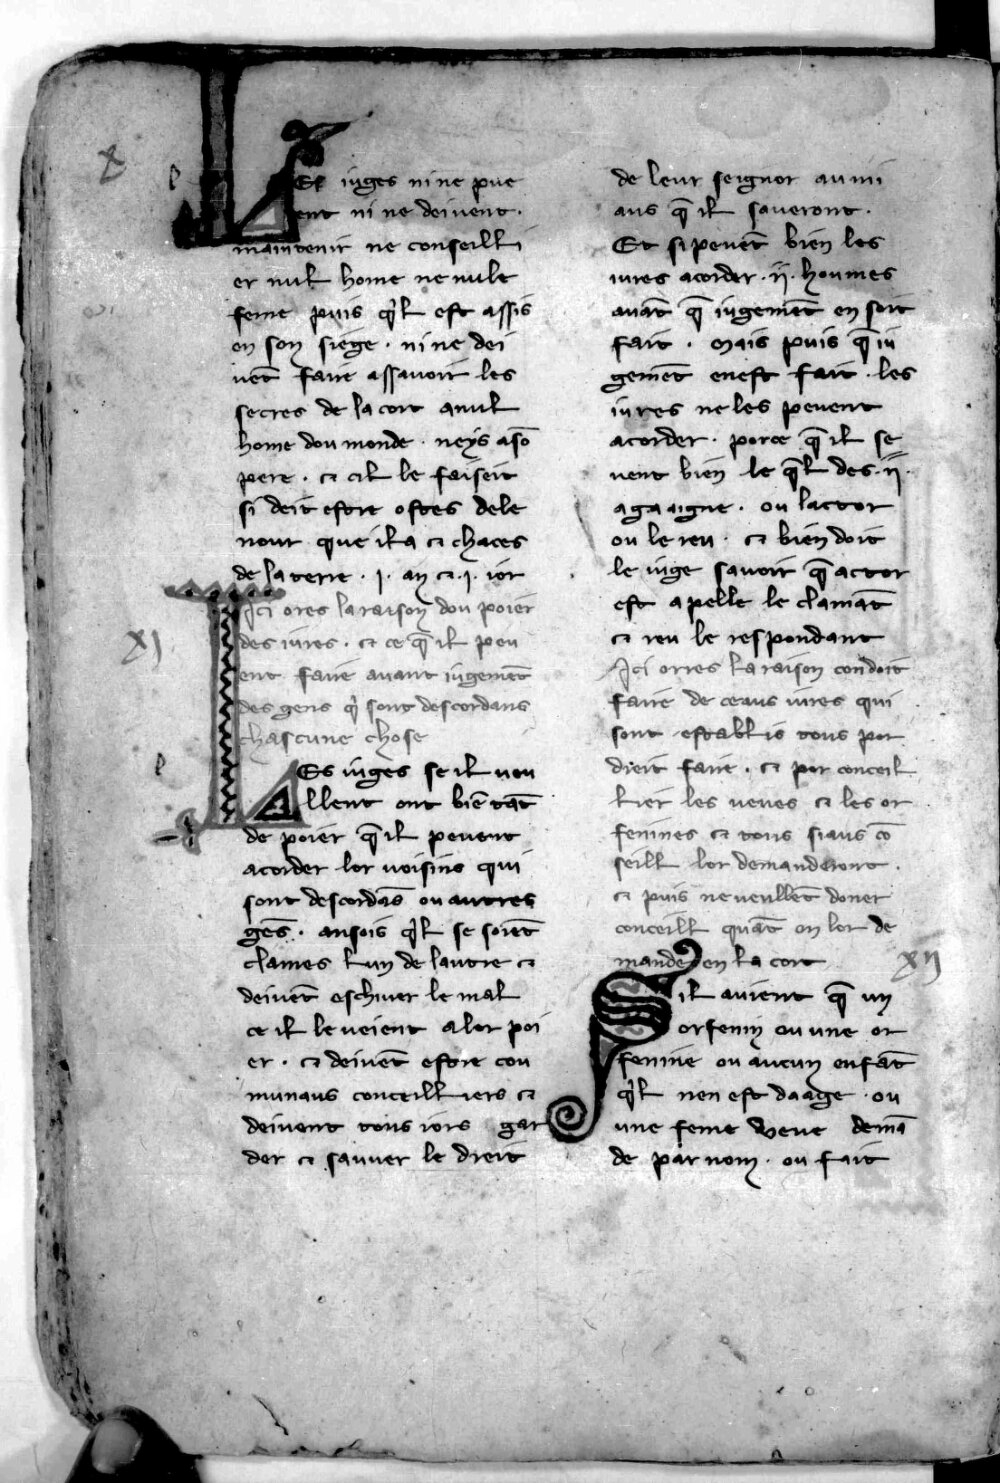 X
l
LEs iuges ni ne pue
ent ni ne deiuent·
maintenir ne conseilli
er nul home ne nule
feme puis q'l est assis
en son siege · ni ne dei
uēt faire assauoir les
secres de la cort a nul
home dou monde · neys a sō
pere · ⁊ cil le faiseit
si deit estre ostes de le
nour que il a ⁊ chaces
de la terre · i · an ⁊ · i · ior
XI
Ici ores la raison dou poier
des iures · ⁊ ce q̄ il peu
ent faire auant iugemēt
des gens q' sont descordans
chascune chose
l
LEs iuges se il uou
llent ont biē tāt
de poier q̄ il peuent
acorder lor uoisins qui
sont descordās ou autres
gēs · ansois q'l se soiēt
clames lun de lautre ⁊
deiuēt eschiuer le mal
ce il le ueient a lor poi
er · ⁊ deiuēt estre cou
munaus conceilliers ⁊
deiuent tous iors gar
der ⁊ sauuer le dreit
de leur seignor au mi
aus q̄ il saueront ·
Et si peuēt bien les
iures acorder · ii · houmes
auāt q̄ iugemēt en soit
fait · Mais puis q̄ iu
gemēt en est fait · les
iures ne les peuent
acorder · porce q̄ il se
uent bien le q̄l des · ii ·
a gaaigne · ou lactor
ou le reu · ⁊ bien doit
le iuge sauoir q̄ actor
est apelle le clamāt
⁊ reu le respondant
Ici orres la raison con doit
faire de ceaus iures qui
sont establis tous por
dreit faire · ⁊ por conceil
lier les ueues ⁊ les or
fenines ⁊ tous siaus cō
seill lor demanderont ·
⁊ puis ne ueullēt doner
conceill quāt on lor de
mande en la cort
XII
Sil auient q̄ un
orfenin ou une or
fenine ou aucun enfāt
q'l nen est daage · ou
une feme veue demā
de par nom · ou fait